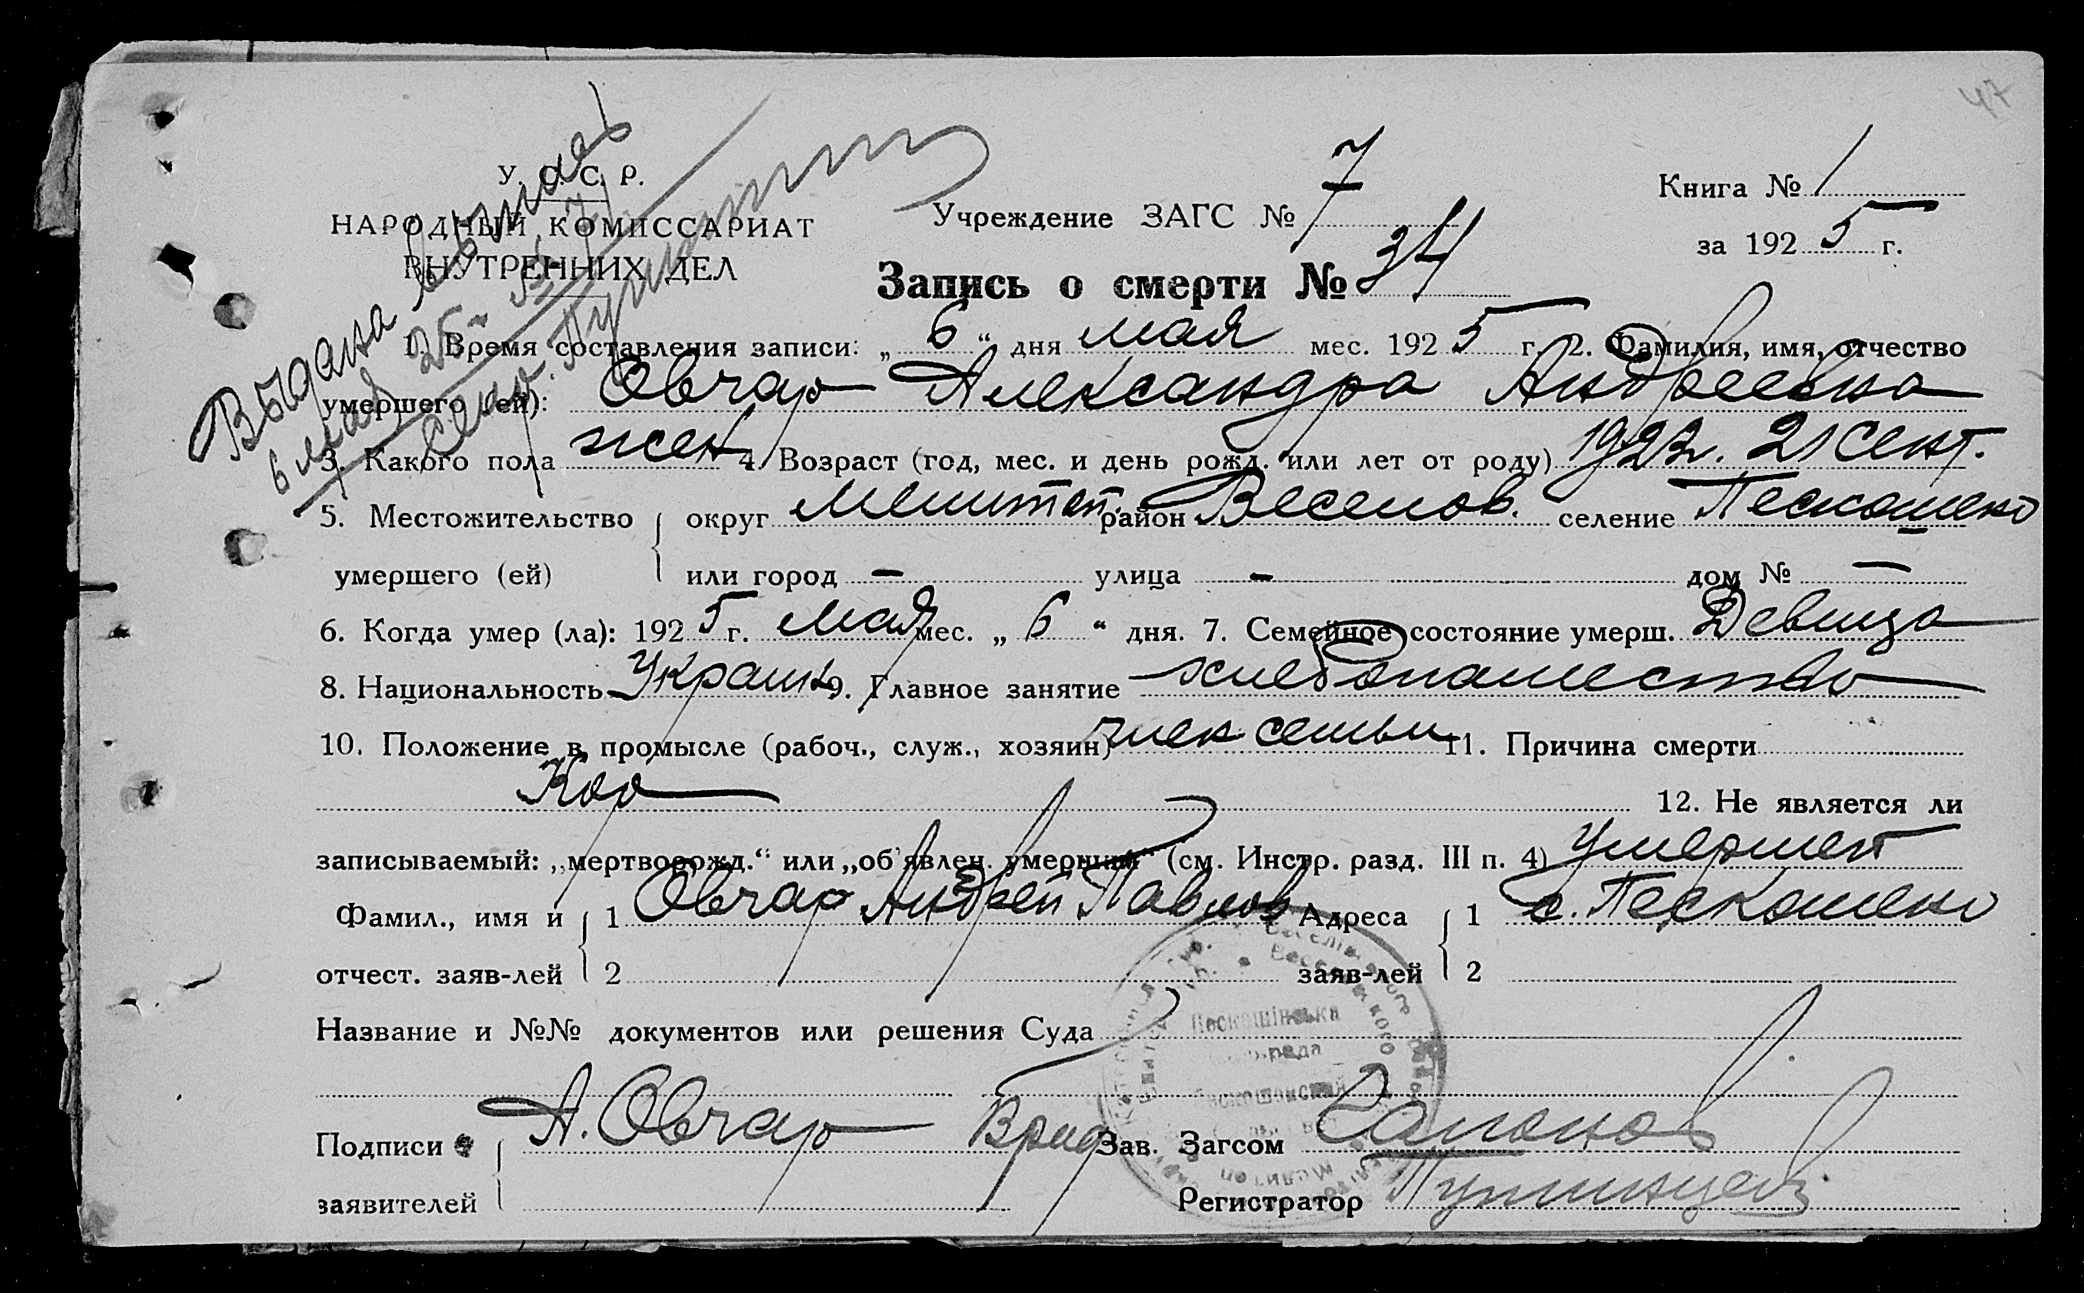 47
У. С. С. Р.
НАРОДНЫЙ КОМИССАРИАТ
ВНУТРЕННИХ ДЕЛ
Выдана выпись
6 мая 25 г. № 71
Секр.
Учреждение ЗАГС № 7
Книга № 1
за 1925 г.
Запись о смерти № 34
1. Время составления записи: „ 6 “ дня мая мес. 1925 г. 2. Фамилия, имя, отчество
умершего (ей): Овчар Александра Андреевна
3. Какого пола жен 4. Возраст (год, мес. и день рожд. или лет от роду) 1922г. 21 сент.
5. Местожительство округ Мелитоп. район Веселов. селение Пескошено
умершего (ей) или город — улица — дом № —
6. Когда умер (ла): 1925 г. мая мес. „ 6 “ дня. 7. Семейное состояние умерш. Девица
8. Национальность Украин. 9. Главное занятие хлебопашество
10. Положение в промысле (рабоч., служ., хозяин) член семьи 11. Причина смерти
Кор
12. Не является ли
записываемый: „мертворожд.“ или „об'явлен. умершим“ (см. Инстр. разд. III п. 4) умершей
Фамил., имя и 1 Овчар Андрей Павлов Адреса 1 с. Пескошено
отчест. заяв-лей 2 заяв-лей 2
Название и №№ документов или решения Суда
Пескошінська
рада
Подписи А. Овчар Врид Зав. Загсом Сапонов
заявителей Регистратор